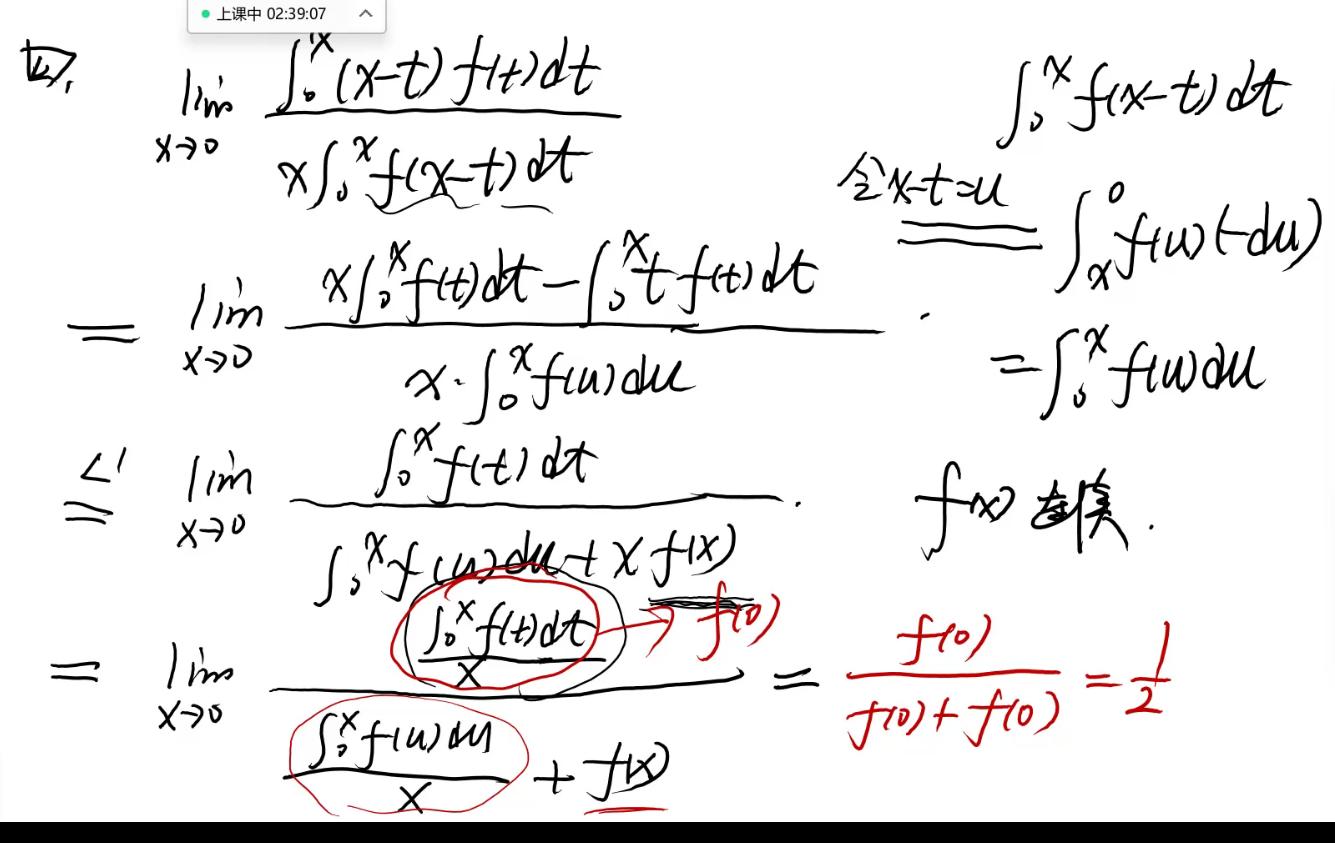 上课中 02:39:07
四、 lim_{x→0} \frac{∫_0^x (x-t) f(t) dt}{x∫_0^x f(x-t) dt}
= lim_{x→0} \frac{x∫_0^x f(t) dt - ∫_0^x t f(t) dt}{x·∫_0^x f(u) du}.
L' = lim_{x→0} \frac{∫_0^x f(t) dt}{∫_0^x f(u) du + x f(x)}.
= lim_{x→0} \frac{\frac{∫_0^x f(t) dt}{x} → f(0)}{\frac{∫_0^x f(u) du}{x} + f(x)} = \frac{f(0)}{f(0) + f(0)} = \frac{1}{2}
∫_0^x f(x-t) dt
令x-t=u = ∫_x^0 f(u) (-du)
= ∫_0^x f(u) du
f(x) 连续.